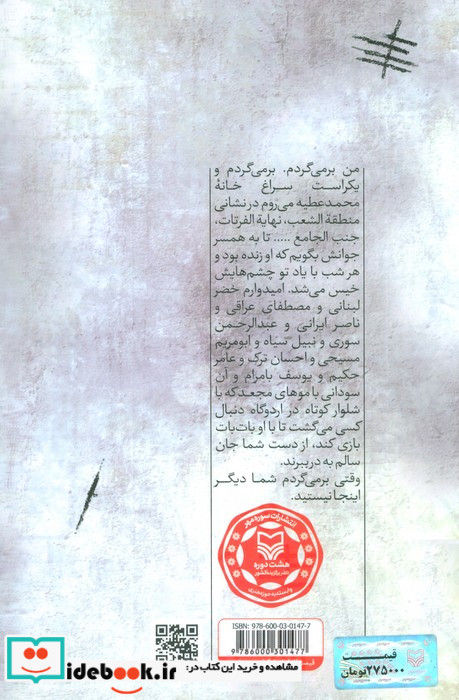 من برمی‌گردم. برمی‌گردم و
یکراست سراغ خانهٔ
محمدعطیه می‌روم در نشانی
منطقة الشعب، نهایة الفرتات،
جنب الجامع ..... تا به همسر
جوانش بگویم که او زنده بود و
هر شب با یاد تو چشم‌هایش
خیس می‌شد. امیدوارم خضر
لبنانی و مصطفای عراقی و
ناصر ایرانی و عبدالرحمن
سوری و نبیل سیاه و ابومریم
مسیحی و احسان ترک و عامر
حکیم و یوسف بامرام و آن
سودانی با موهای مجعد که با
شلوار کوتاه در اردوگاه دنبال
کسی می‌گشت تا با او بات‌بات
بازی کند، از دست شما جان
سالم به در ببرند.
وقتی برمی‌گردم شما دیگر
اینجا نیستید.
انتشارات سوره مهر
هشت دوره
ناشر برگزیده کشور
وابسته به حوزه هنری
ISBN: 978-600-03-0147-7
9 786000 301477
قیمت
۲۷۵۰۰۰ تومان
مشاهده و خرید این کتاب در:
idebook.ir